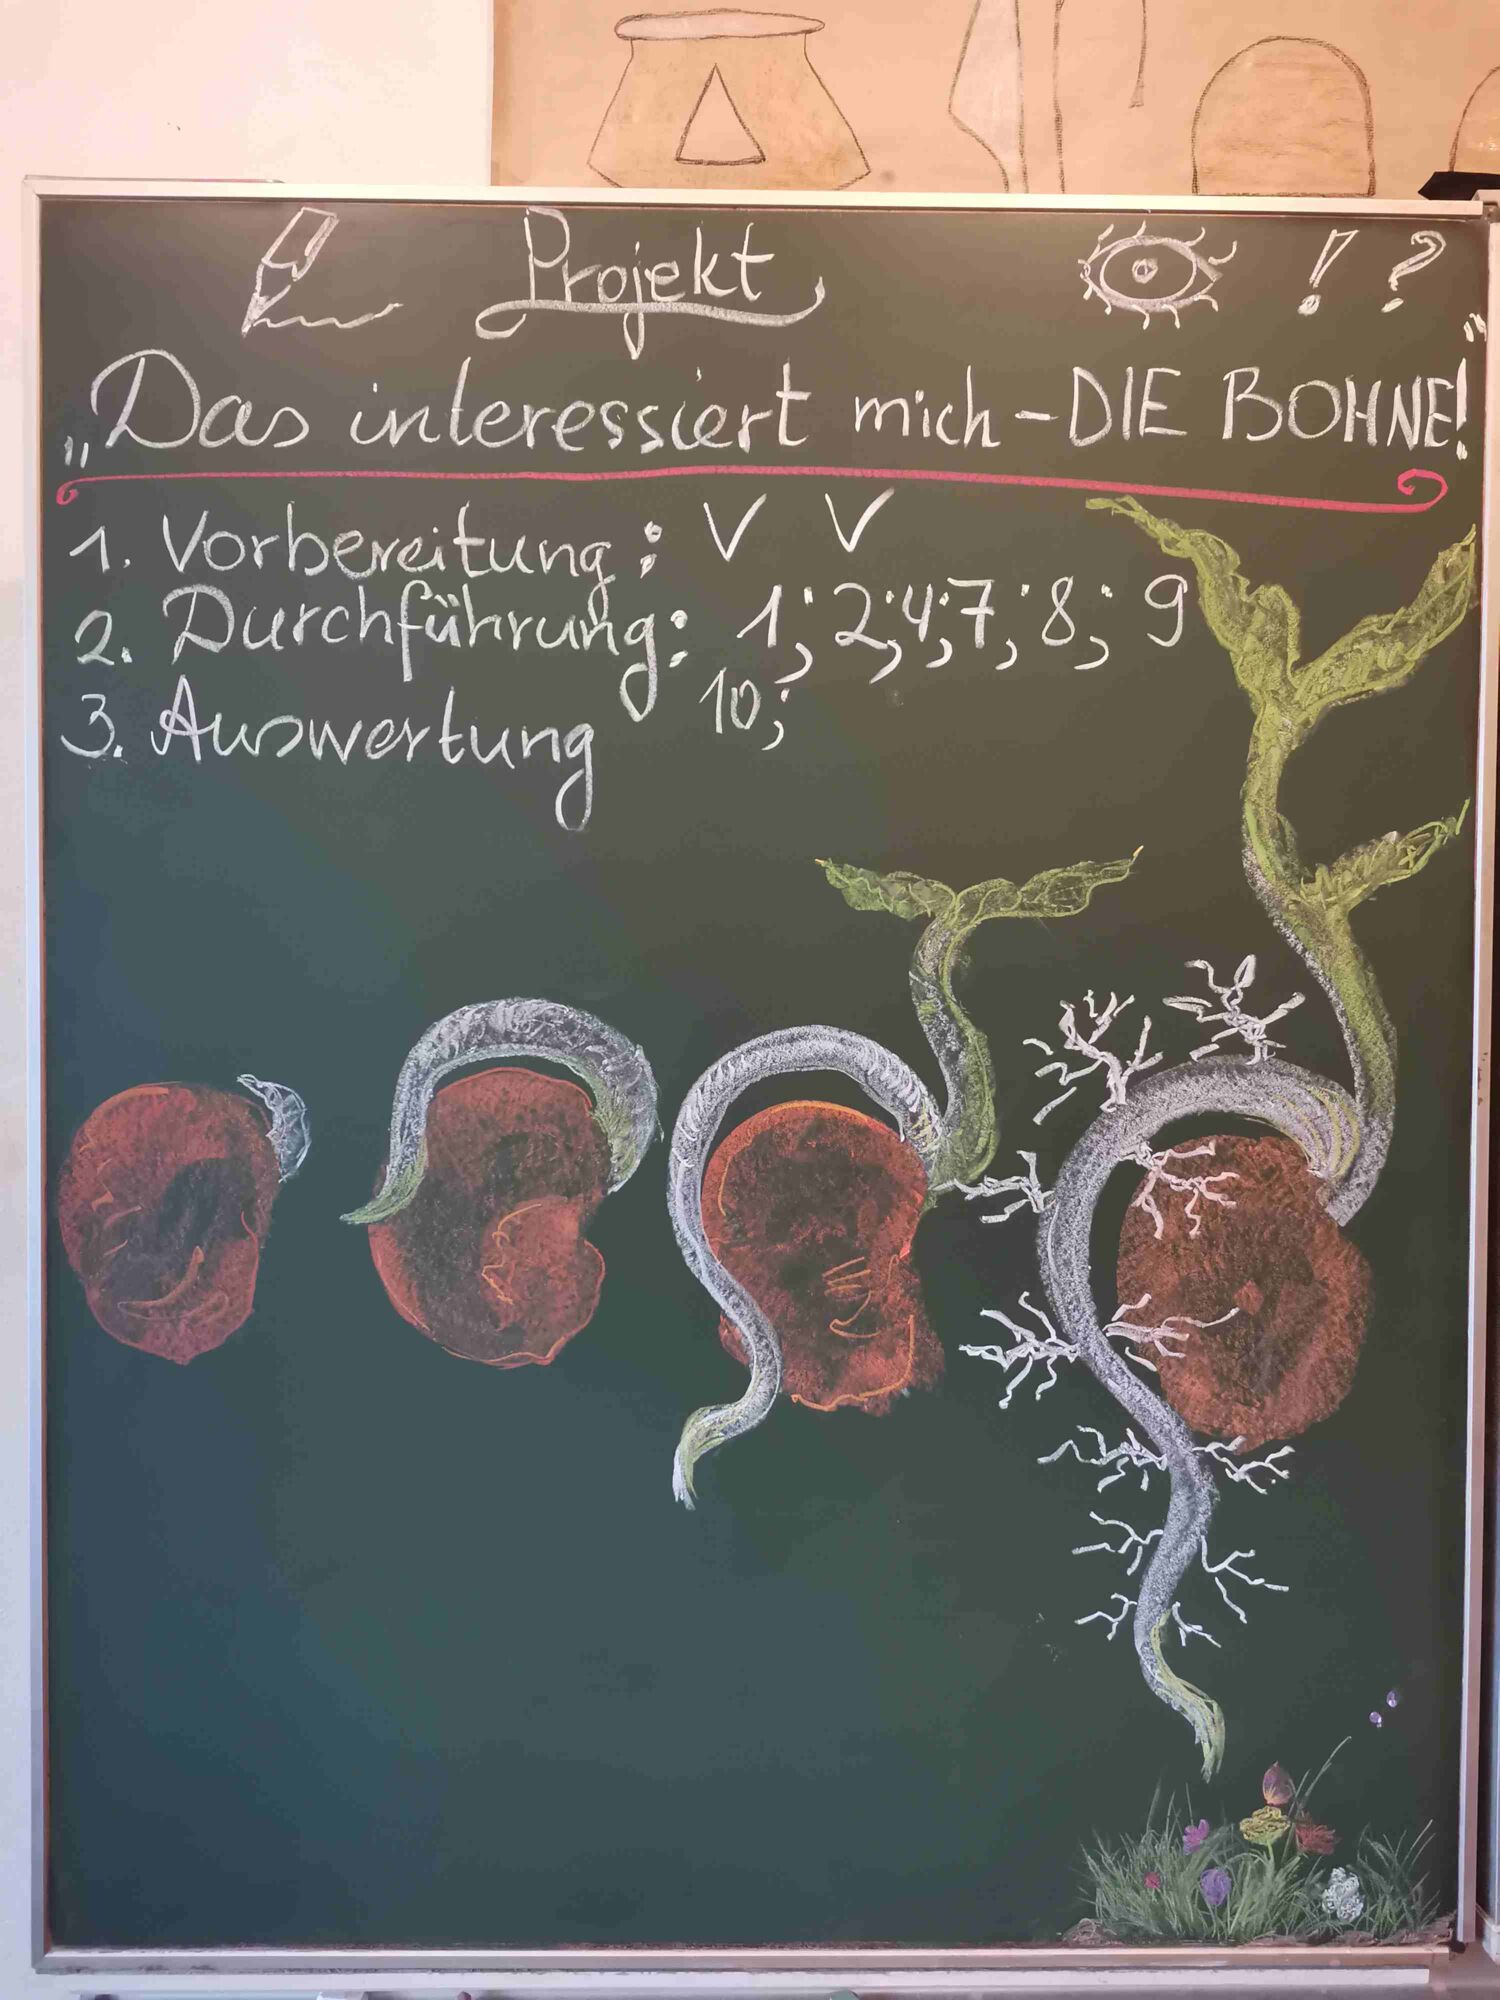 Projekt ! ?
„Das interessiert mich - DIE BOHNE!“
1. Vorbereitung: V V
2. Durchführung: 1; 2; 4; 7; 8; 9
10;
3. Auswertung